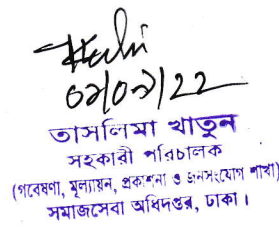 ০৯/০৯/২২
তাসলিমা খাতুন
সহকারী পরিচালক
(গবেষণা, মূল্যায়ন, প্রকাশনা ও জনসংযোগ শাখা)
সমাজসেবা অধিদপ্তর, ঢাকা।